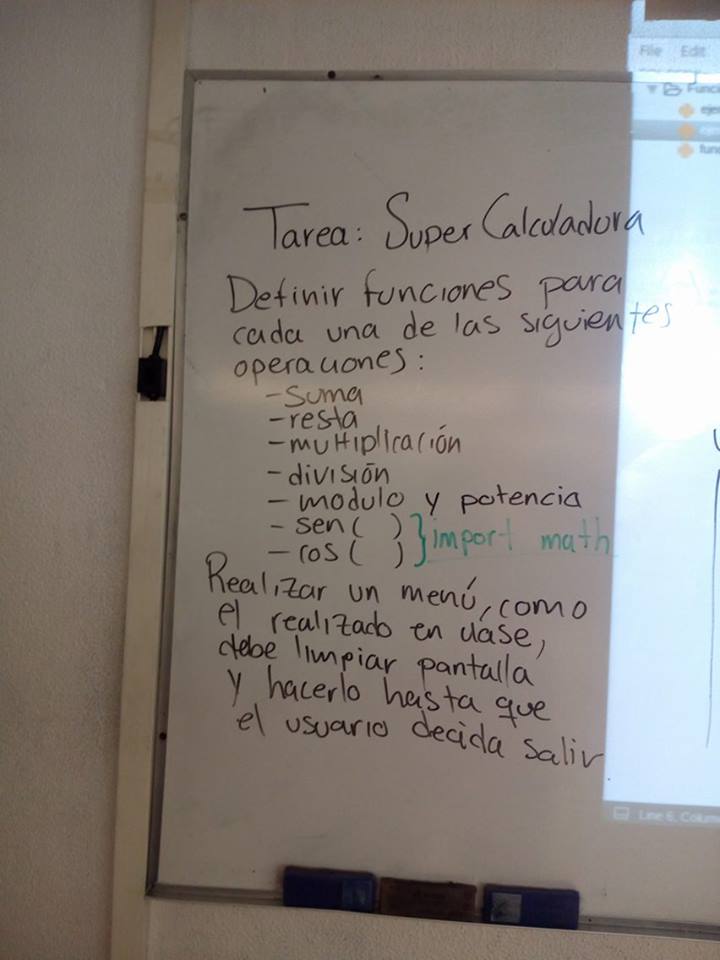 File Edit
Tarea: Super Calculadora
Definir funciones para
cada una de las siguientes
operaciones:
- suma
- resta
- multiplicación
- división
- modulo y potencia
- sen( ) } import math
- cos( )
Realizar un menú, como
el realizado en clase,
debe limpiar pantalla
y hacerlo hasta que
el usuario decida salir
Line 6, Colum